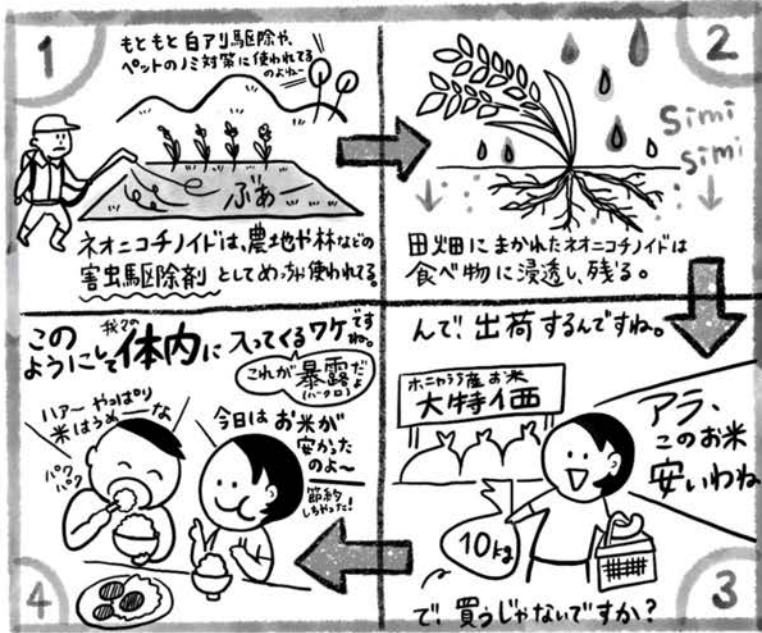 1
もともと白アリ駆除や、
ペットのノミ対策に使われてる
のよねー
ぶぁー
ネオニコチノイドは、農地や林などの
害虫駆除剤としてめっちゃ使われてる。
2
simi
simi
田畑にまかれたネオニコチノイドは
食べ物に浸透し、残る。
んで!出荷するんですね。
ホニャララ産お米
大特価
アラ、
このお米
安いわね
10kg
で!買うじゃないですか?
3
このようにして我々の体内に入ってくるワケですね。
これが暴露だよ
(バクロ)
ハァーやっぱり
米はうめーーな
パク
パク
今日はお米が
安かった
のよ〜
節約
しちゃった!
4